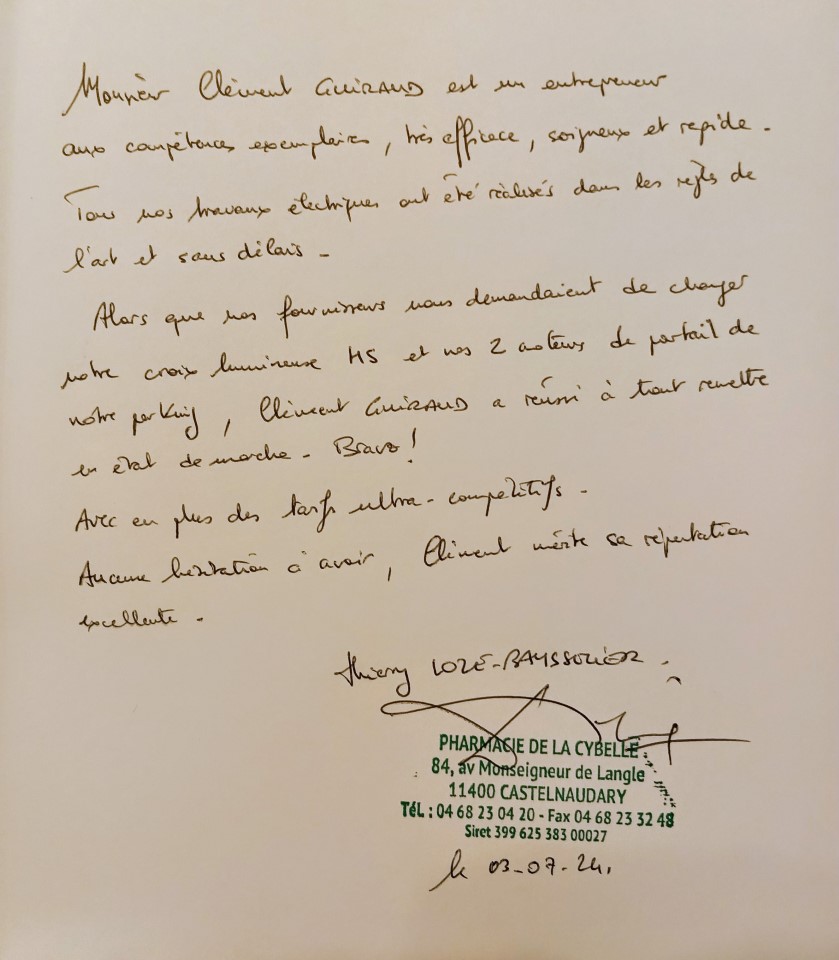 Monsieur Clément GUIRAUD est un entrepreneur
aux compétences exemplaires, très efficace, soigneux et rapide.
Tous nos travaux électriques ont été réalisés dans les règles de
l'art et sans délais.
Alors que nos fournisseurs nous demandaient de changer
notre croix lumineuse HS et nos 2 moteurs de portail de
notre parking, Clément GUIRAUD a réussi à tout remettre
en état de marche. Bravo !
Avec en plus des tarifs ultra-compétitifs.
Aucune hésitation à avoir, Clément mérite sa réputation
excellente.
Thierry
PHARMACIE DE LA CYBELLE
84, av Monseigneur de Langle
11400 CASTELNAUDARY
TéL : 04 68 23 04 20 - Fax 04 68 23 32 48
Siret 399 625 383 00027
le 03-07-24.